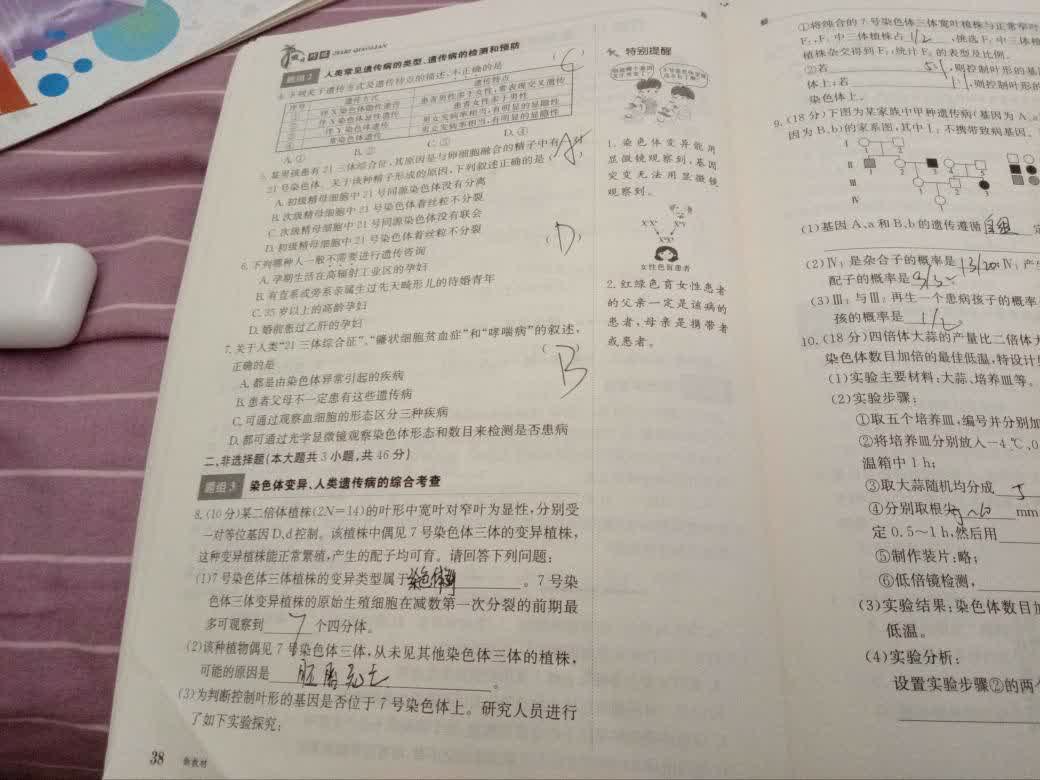 题组2 人类常见遗传病的类型、遗传病的检测和预防
4.下列关于遗传方式及遗传特点的描述,不正确的是 (C)
序号 遗传方式 遗传特点
① 伴X染色体隐性遗传 患者男性多于女性,常表现交叉遗传
② 伴X染色体显性遗传 患者女性多于男性
③ 伴Y染色体遗传 男女发病率相当,有明显的显隐性
④ 常染色体遗传 男女发病率相当,有明显的显隐性
A.① B.② C.③ D.④
5.某男孩患有21三体综合征,其原因是与卵细胞融合的精子中有一对
21号染色体。关于该种精子形成的原因,下列叙述正确的是 (A)
A.初级精母细胞中21号同源染色体没有分离
B.次级精母细胞中21号染色体着丝粒不分裂
C.次级精母细胞中21号同源染色体没有联会
D.初级精母细胞中21号染色体着丝粒不分裂
6.下列哪种人一般不需要进行遗传咨询 (D)
A.孕期生活在高辐射工业区的孕妇
B.有直系或旁系亲属生过先天畸形儿的待婚青年
C.35岁以上的高龄孕妇
D.婚前患过乙肝的孕妇
7.关于人类“21三体综合征”、“镰状细胞贫血症”和“哮喘病”的叙述,
正确的是 (B
A.都是由染色体异常引起的疾病
B.患者父母不一定患有这些遗传病
C.可通过观察血细胞的形态区分三种疾病
D.都可通过光学显微镜观察染色体形态和数目来检测是否患病
二、非选择题(本大题共3小题,共46分)
题组3 染色体变异、人类遗传病的综合考查
8.(10分)某二倍体植株(2N=14)的叶形中宽叶对窄叶为显性,分别受
一对等位基因D、d控制。该植株中偶见7号染色体三体的变异植株,
这种变异植株能正常繁殖,产生的配子均可育。请回答下列问题:
(1)7号染色体三体植株的变异类型属于 。7号染
色体三体变异植株的原始生殖细胞在减数第一次分裂的前期最
多可观察到 7 个四分体。
(2)该种植物偶见7号染色体三体,从未见其他染色体三体的植株,
可能的原因是 。
(3)为判断控制叶形的基因是否位于7号染色体上。研究人员进行
了如下实验探究:
38 新教材
特别提醒
1.染色体变异能用
显微镜观察到,基因
突变无法用显微镜
观察到。
女性色盲患者
2.红绿色盲女性患者
的父亲一定是该病的
患者,母亲是携带者
或患者。
①将纯合的7号染色体三体宽叶植株与正常窄叶
F₁,F₁中三体植株占 1/2 ,挑选F₁中三体植
植株杂交得到F₂,统计F₂的表型及比例。
②若 5:1 ,则控制叶形的基
体上;若 1:1 ,则控制叶形的
染色体上。
9.(18分)下图为某家族中甲种遗传病(基因为A、a
因为B、b)的家系图,其中Ⅰ₂不携带致病基因。
Ⅰ
Ⅱ
Ⅲ
Ⅳ
(1)基因A、a和B、b的遗传遵循 自组 定
(2)Ⅳ₁是杂合子的概率是 13/20 ,Ⅳ₁产生
配子的概率是
(3)Ⅲ₂与Ⅲ₃再生一个患病孩子的概率
孩的概率是 1/2
10.(18分)四倍体大蒜的产量比二倍体大
染色体数目加倍的最佳低温,特设计
(1)实验主要材料:大蒜、培养皿等。
(2)实验步骤:
①取五个培养皿,编号并分别加
②将培养皿分别放入-4℃、0
温箱中1 h;
③取大蒜随机均分成 5
④分别取根尖 mm
定0.5~1 h,然后用
⑤制作装片:略;
⑥低倍镜检测,
(3)实验结果:染色体数目加
低温。
(4)实验分析:
设置实验步骤②的两个